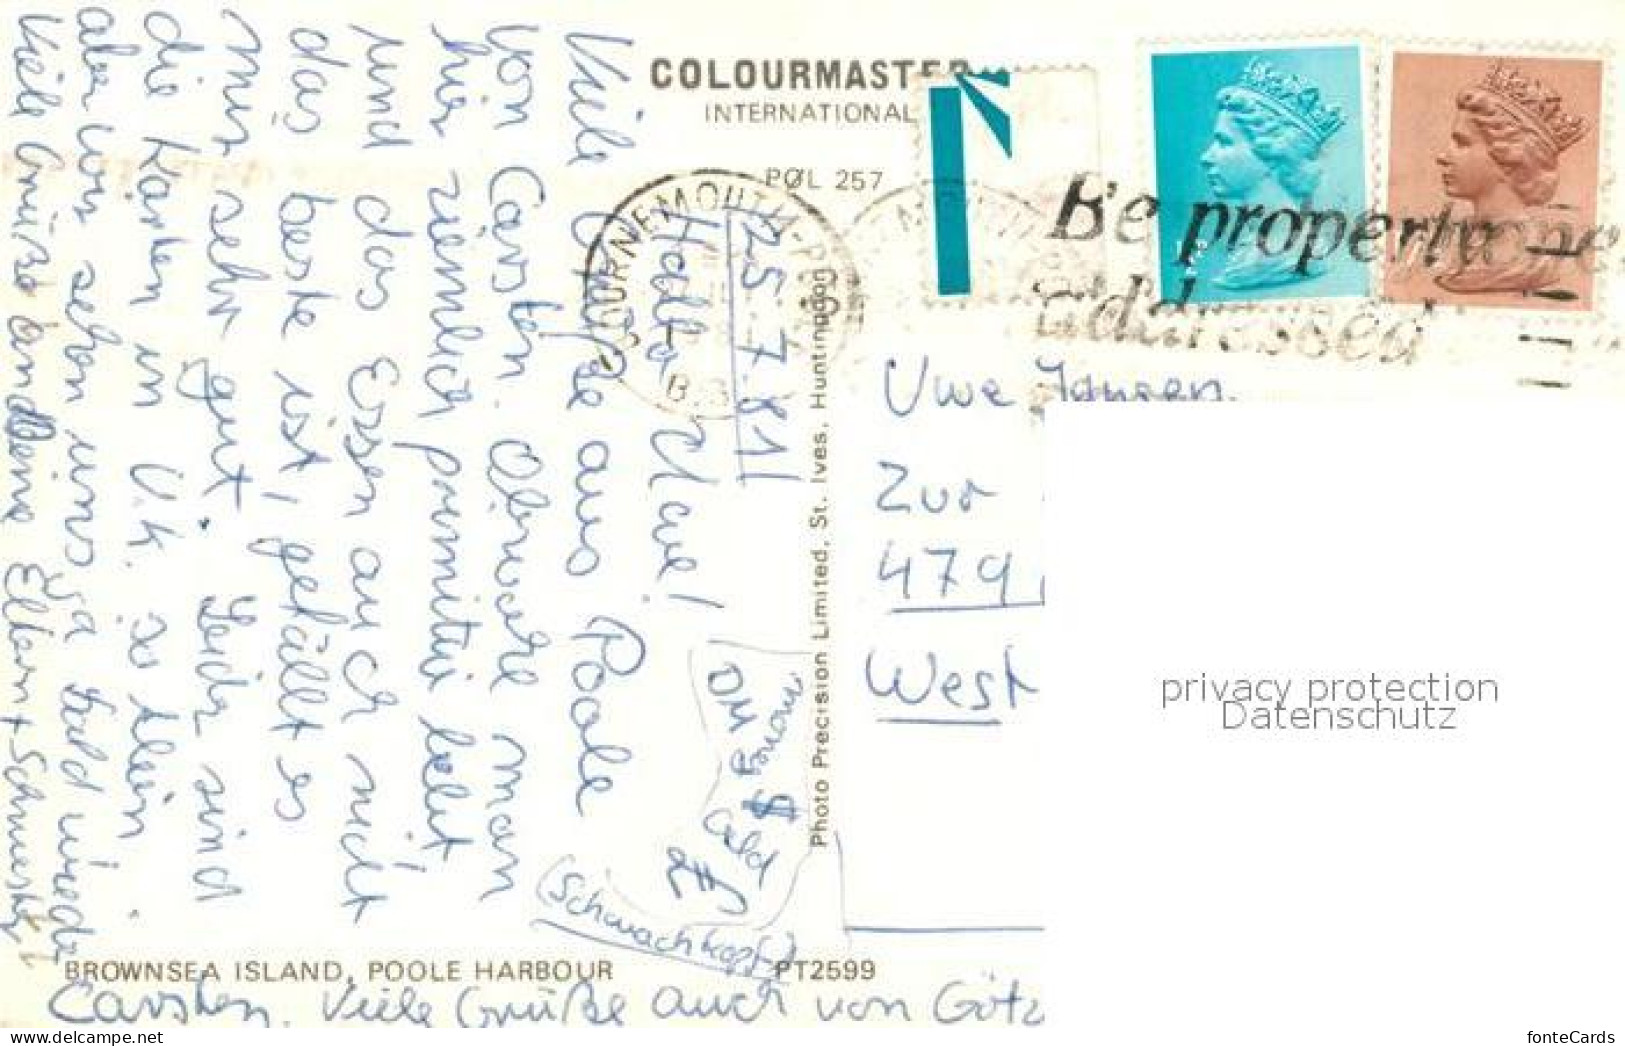 COLOURMASTER
INTERNATIONAL
POL 257
BOURNEMOUTH-P
Be properly
addressed
25.7.81
Hallo Uwe!
Viele Grüße aus Poole
von Carsten. Obwohl man
hier ziemlich primitiv lebt
und das Essen auch nicht
das beste ist, gefällt es
mir sehr gut. Leider sind
die Karten in U.K. so klein
aber wir sehen uns ja bald wieder
Viele Grüße an Deine Eltern + Schwester
Carsten. Viele Grüße auch von Götz
DM
money
$
Geld
£
(Schwachkopf)
Photo Precision Limited, St. Ives, Huntingdon
Uwe Jansen
Zur
479
West
BROWNSEA ISLAND, POOLE HARBOUR
PT2599
privacy protection
Datenschutz
fonteCards